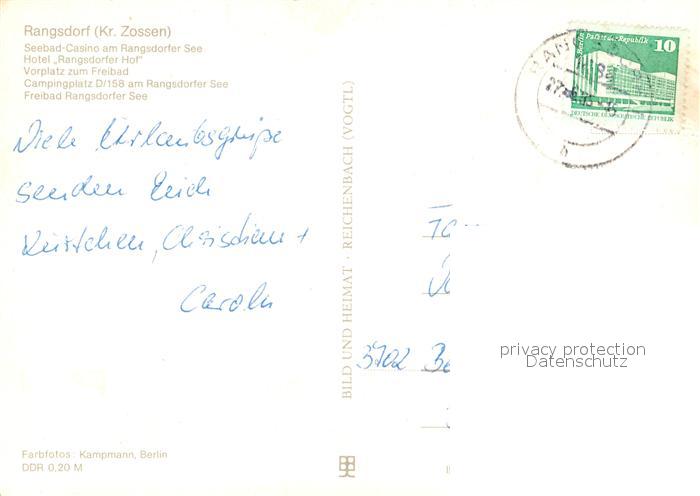 Rangsdorf (Kr. Zossen)
Seebad-Casino am Rangsdorfer See
Hotel „Rangsdorfer Hof"
Vorplatz zum Freibad
Campingplatz D/158 am Rangsdorfer See
Freibad Rangsdorfer See
Viele Urlaubsgrüße
senden Euch
Christian +
Carola
BILD UND HEIMAT · REICHENBACH (VOGTL)
Berlin Palast der Republik 10
DEUTSCHE DEMOKRATISCHE REPUBLIK
Fa
3702 Be
privacy protection
Datenschutz
Farbfotos: Kampmann, Berlin
DDR 0,20 M